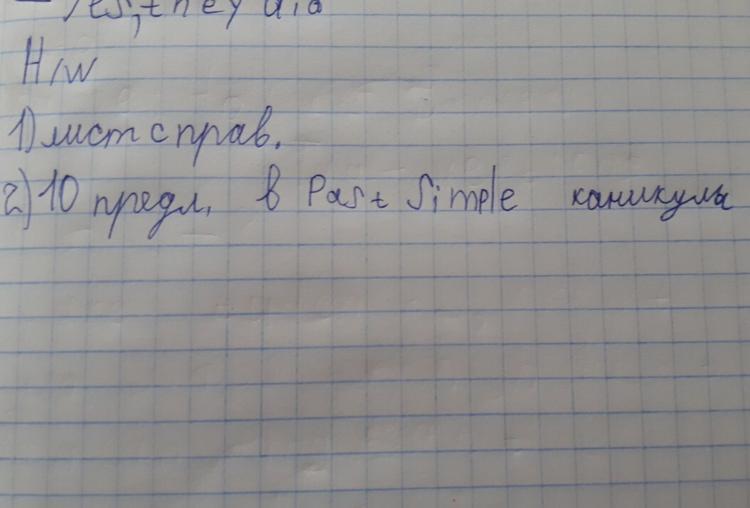 – Yes, they did
H/w
1) лист с прав.
2) 10 предл. в Past Simple каникулы